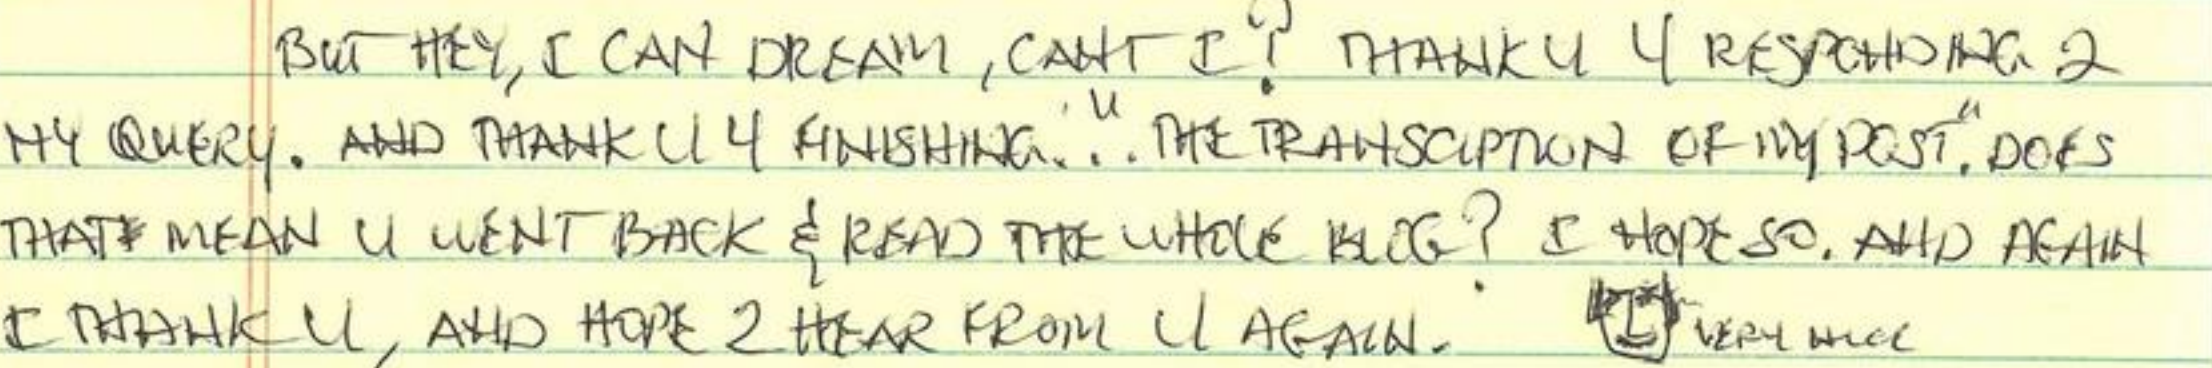 BUT HEY, I CAN DREAM, CANT I? THANK U 4 RESPONDING 2
MY QUERY. AND THANK U 4 FINISHING... "THE TRANSCIPTION OF MY POST". DOES
THAT MEAN U WENT BACK & READ THE WHOLE BLOG? I HOPE SO. AND AGAIN
I THANK U, AND HOPE 2 HEAR FROM U AGAIN. VERY NICE